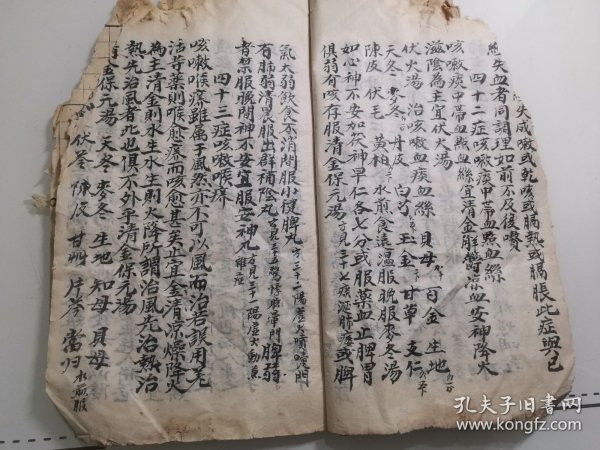 失成嗽或乾咳或膈熱或膈脹此症與已
患失血者同調理如前不及復贅
四十二症咳嗽痰中帶血點血絲
咳嗽痰中帶血點血絲宜清金解鬱涼血安神降火
滋陰為主宜伏火湯
伏火湯 治咳嗽血痰血絲 貝母 百合 生地
天冬 麥冬 丹皮 白芍 玉金 甘草 支仁
陳皮 伏毛 黃柏 水煎食遠溫服晚服麥冬湯
如心神不安加茯神早仁各七分或服藥血止脾胃
俱弱有咳存服清金保元湯 方見三十七痰涎肺痿 或脾
氣大弱飲食不消閒服小健脾丸
有肺弱清晨服出群補陰丸 脾弱
者禁服晚間神不安宜服安神丸
四十三症咳嗽喉痺
咳嗽喉痺雖屬于風然亦不可以風而治若誤用羌
活等藥則喉愈痺而咳愈甚矣正宜金清涼燥降火
為主清金則水生水生則火降所謂治風先治熱治
熱先治風者此也俱不外乎清金保元湯
保元湯 天冬 麥冬 生地 知母 貝母
伏苓 陳皮 甘草 片芩 當归 水煎服
孔夫子旧書网
www.kongfz.com